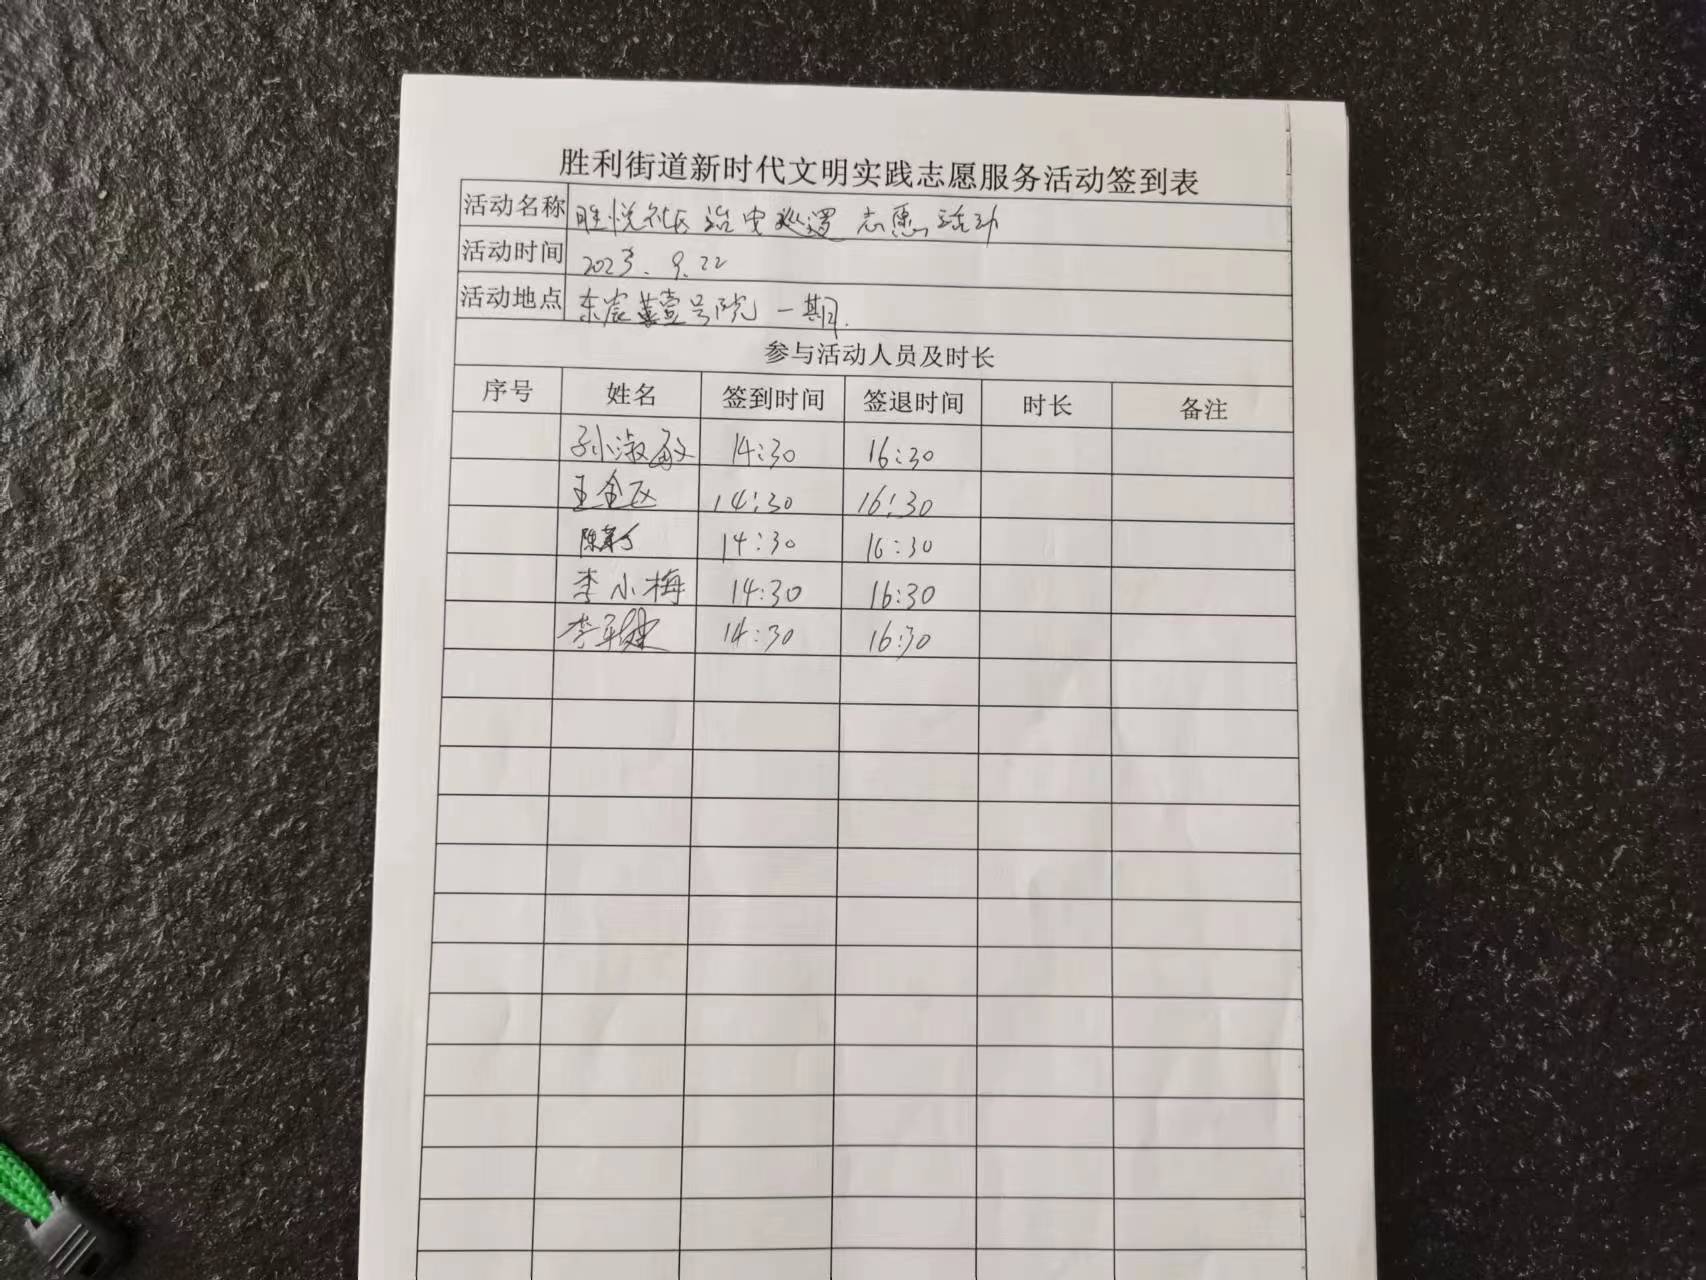 胜利街道新时代文明实践志愿服务活动签到表
活动名称 胜悦社区治安巡逻志愿活动
活动时间 2023.9.22
活动地点 东宸壹号院一期.
参与活动人员及时长
序号 姓名 签到时间 签退时间 时长 备注
孙淑敏 14:30 16:30
王金 14:30 16:30
陈 14:30 16:30
李小梅 14:30 16:30
李 14:30 16:30